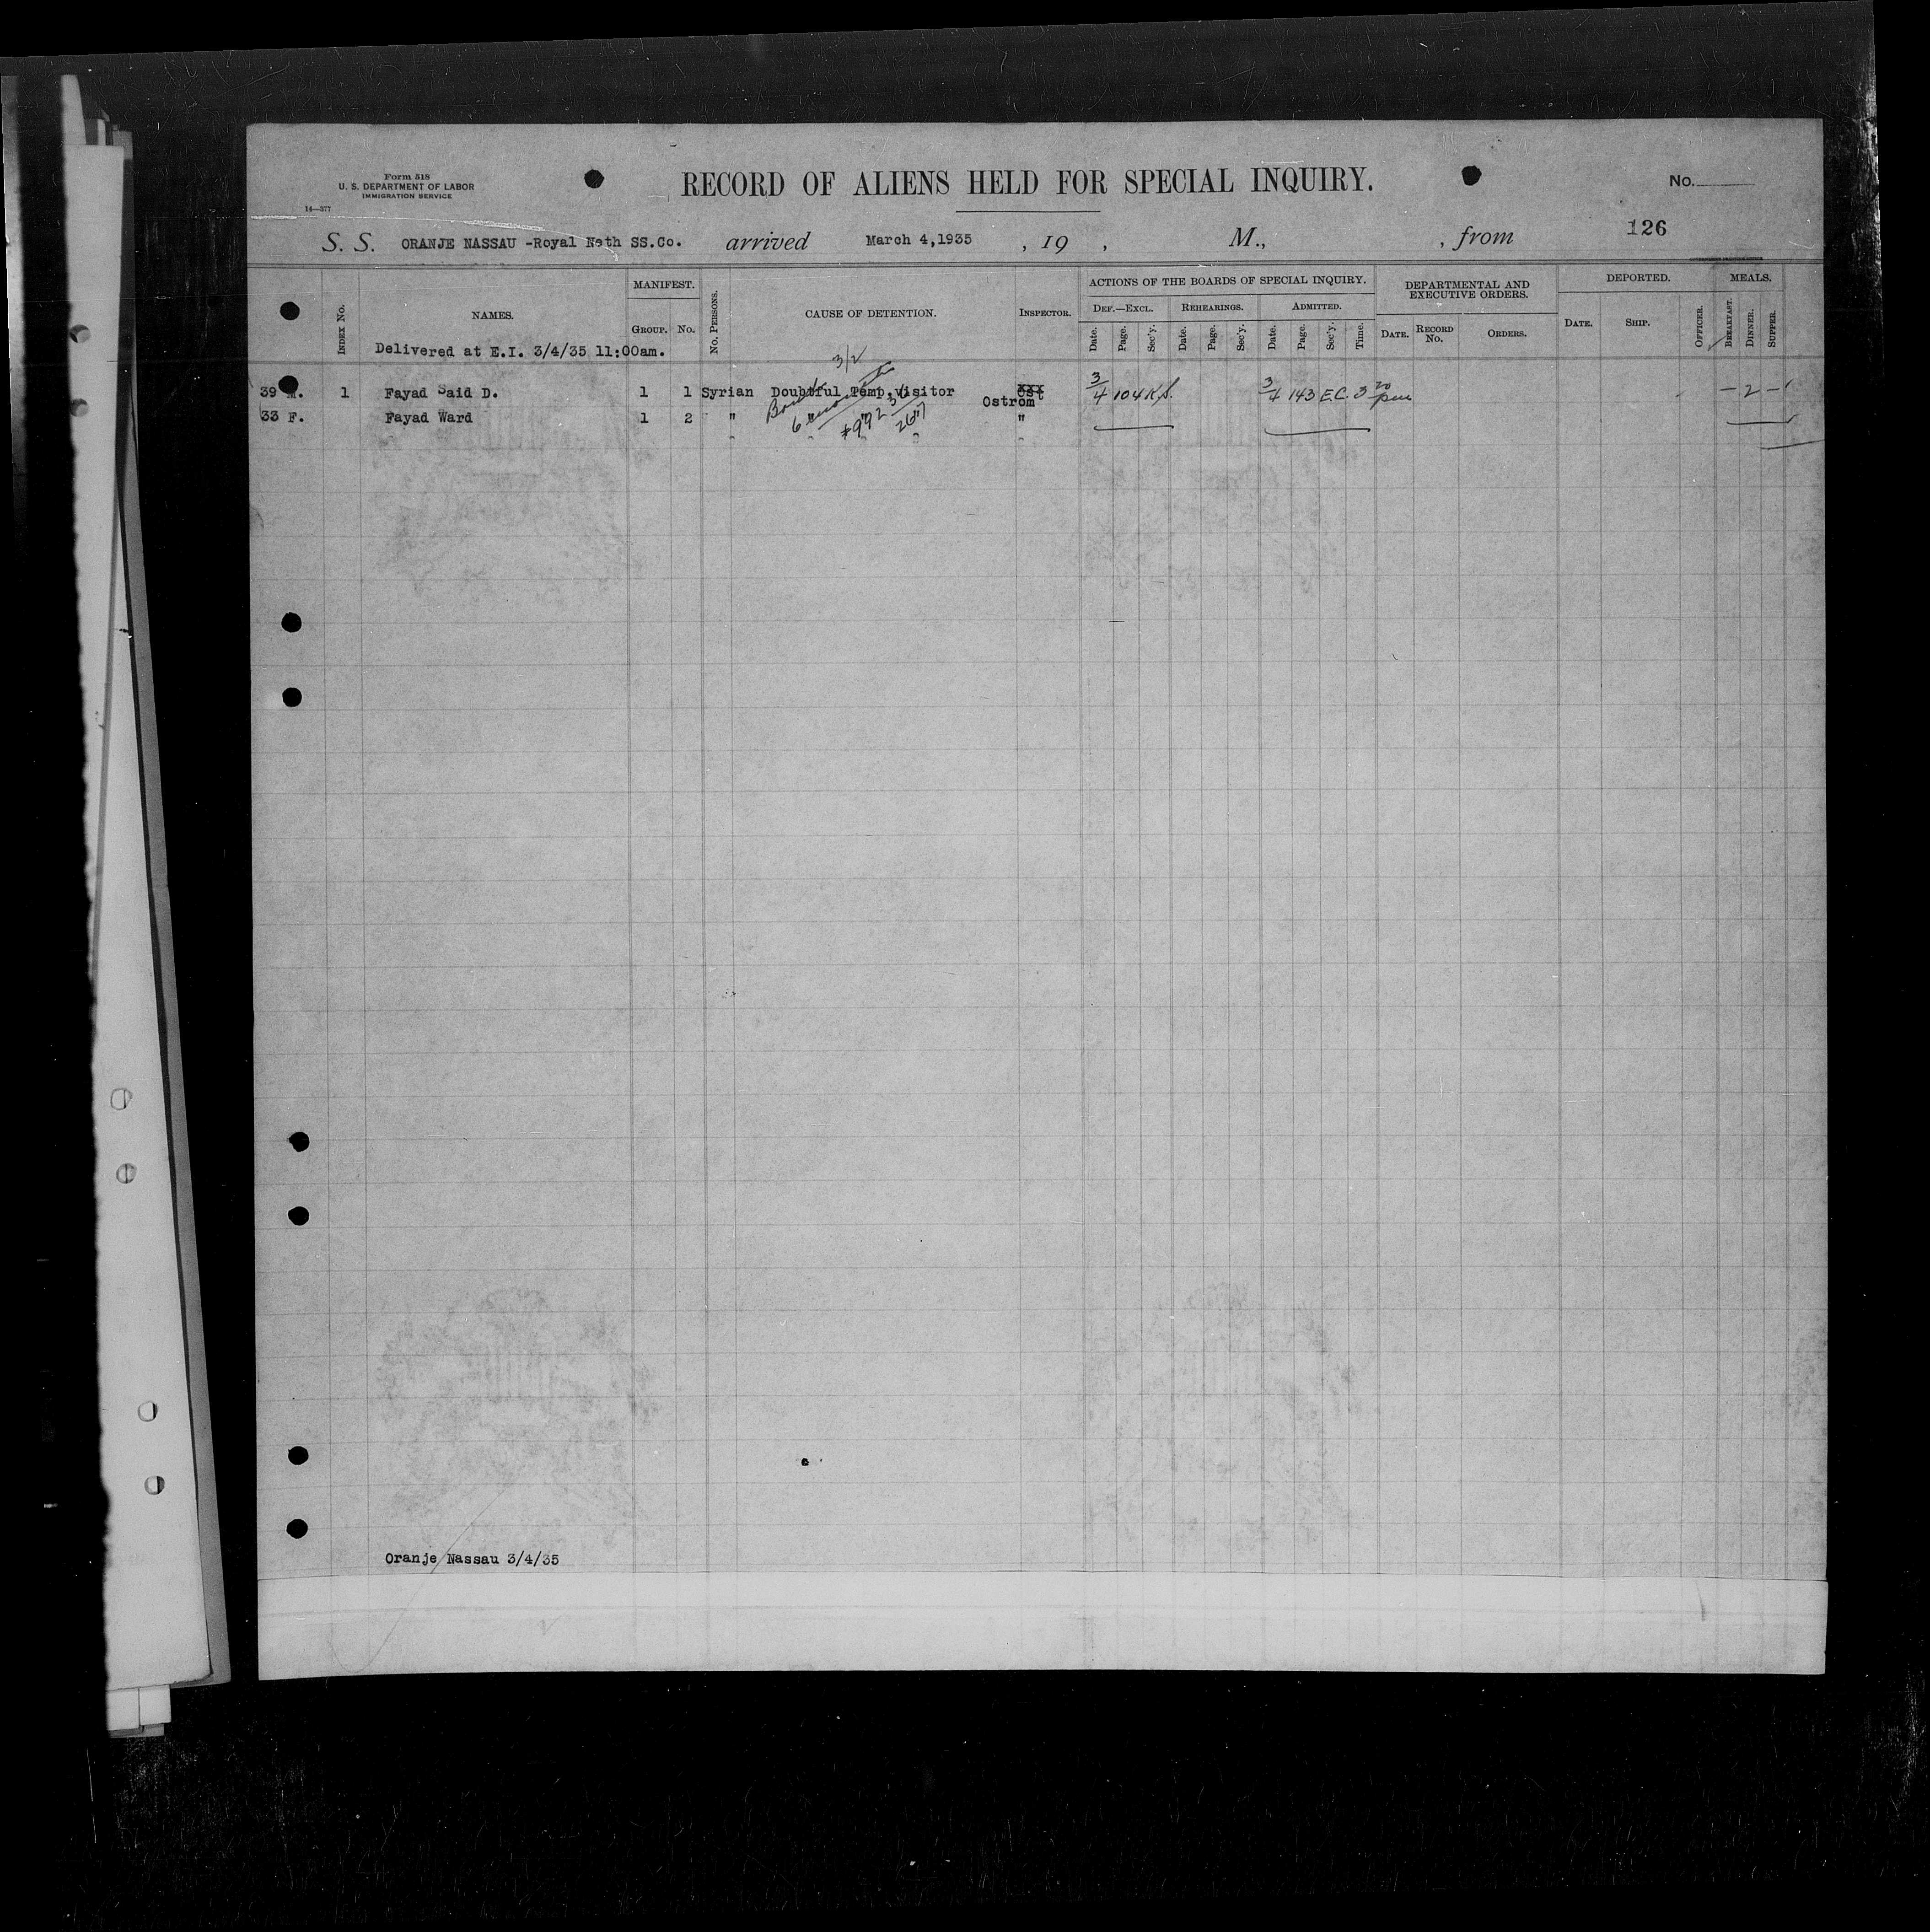 Form 518
U. S. DEPARTMENT OF LABOR
IMMIGRATION SERVICE
14—377
RECORD OF ALIENS HELD FOR SPECIAL INQUIRY.
No.
126
S. S. ORANJE NASSAU -Royal Neth SS.Co. arrived March 4,1935 , 19 , M., , from
INDEX No. NAMES. MANIFEST. GROUP. No. No. PERSONS. CAUSE OF DETENTION. INSPECTOR. ACTIONS OF THE BOARDS OF SPECIAL INQUIRY. DEPARTMENTAL AND EXECUTIVE ORDERS. DEPORTED. MEALS.
DEF.—EXCL. REHEARINGS. ADMITTED.
Date. Page. Sec'y. Date. Page. Sec'y. Date. Page. Sec'y. Time. DATE. RECORD No. ORDERS. DATE. SHIP. OFFICER. BREAKFAST. DINNER. SUPPER.
Delivered at E.I. 3/4/35 11:00am.
3/2
39 M. 1 Fayad Said D. 1 1 Syrian Doubtful Temp.visitor Ostrom 3/4 104 K.S. 3/4 143 E.C. 3 20 pm — 2 —
33 F. Fayad Ward 1 2 " " "
6 months
Oranje Nassau 3/4/35